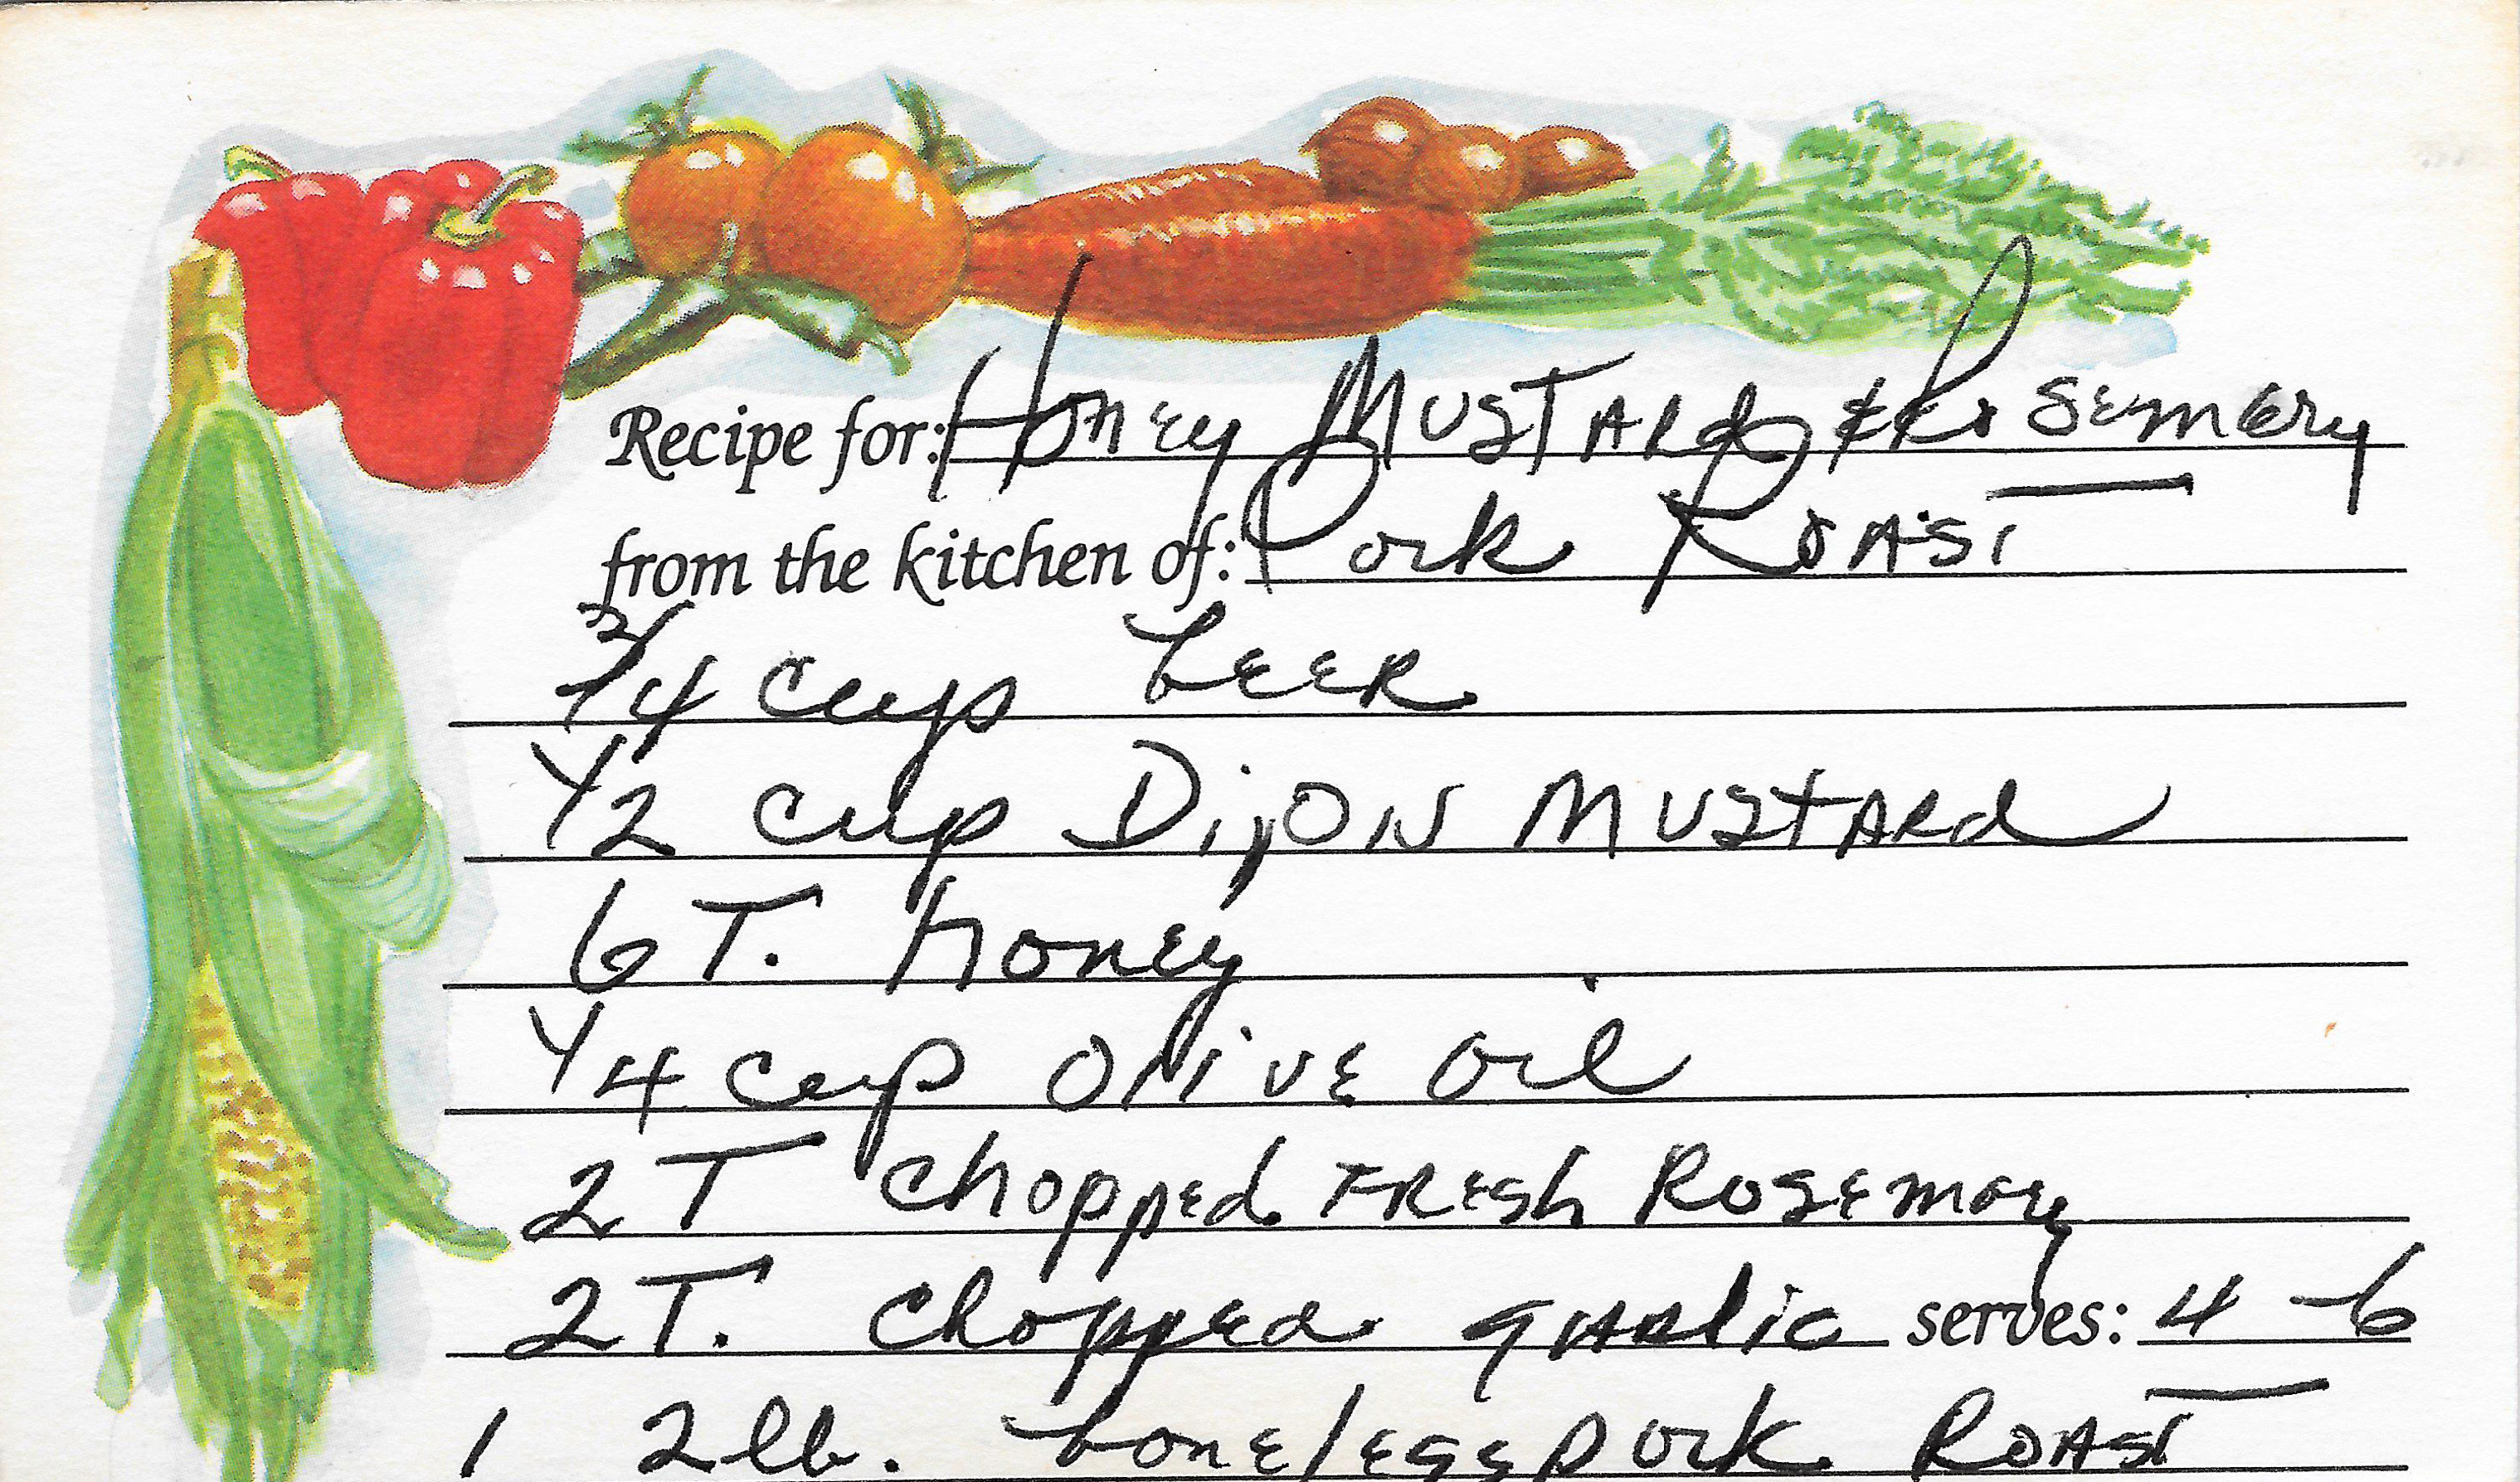 Recipe for: Honey Mustard & Rosemary
from the kitchen of: Pork Roast
3/4 cup beer
1/2 cup Dijon Mustard
6 T. honey
1/4 cup olive oil
2 T chopped fresh Rosemary
2 T. chopped garlic serves: 4-6
1 2 lb. boneless pork Roast